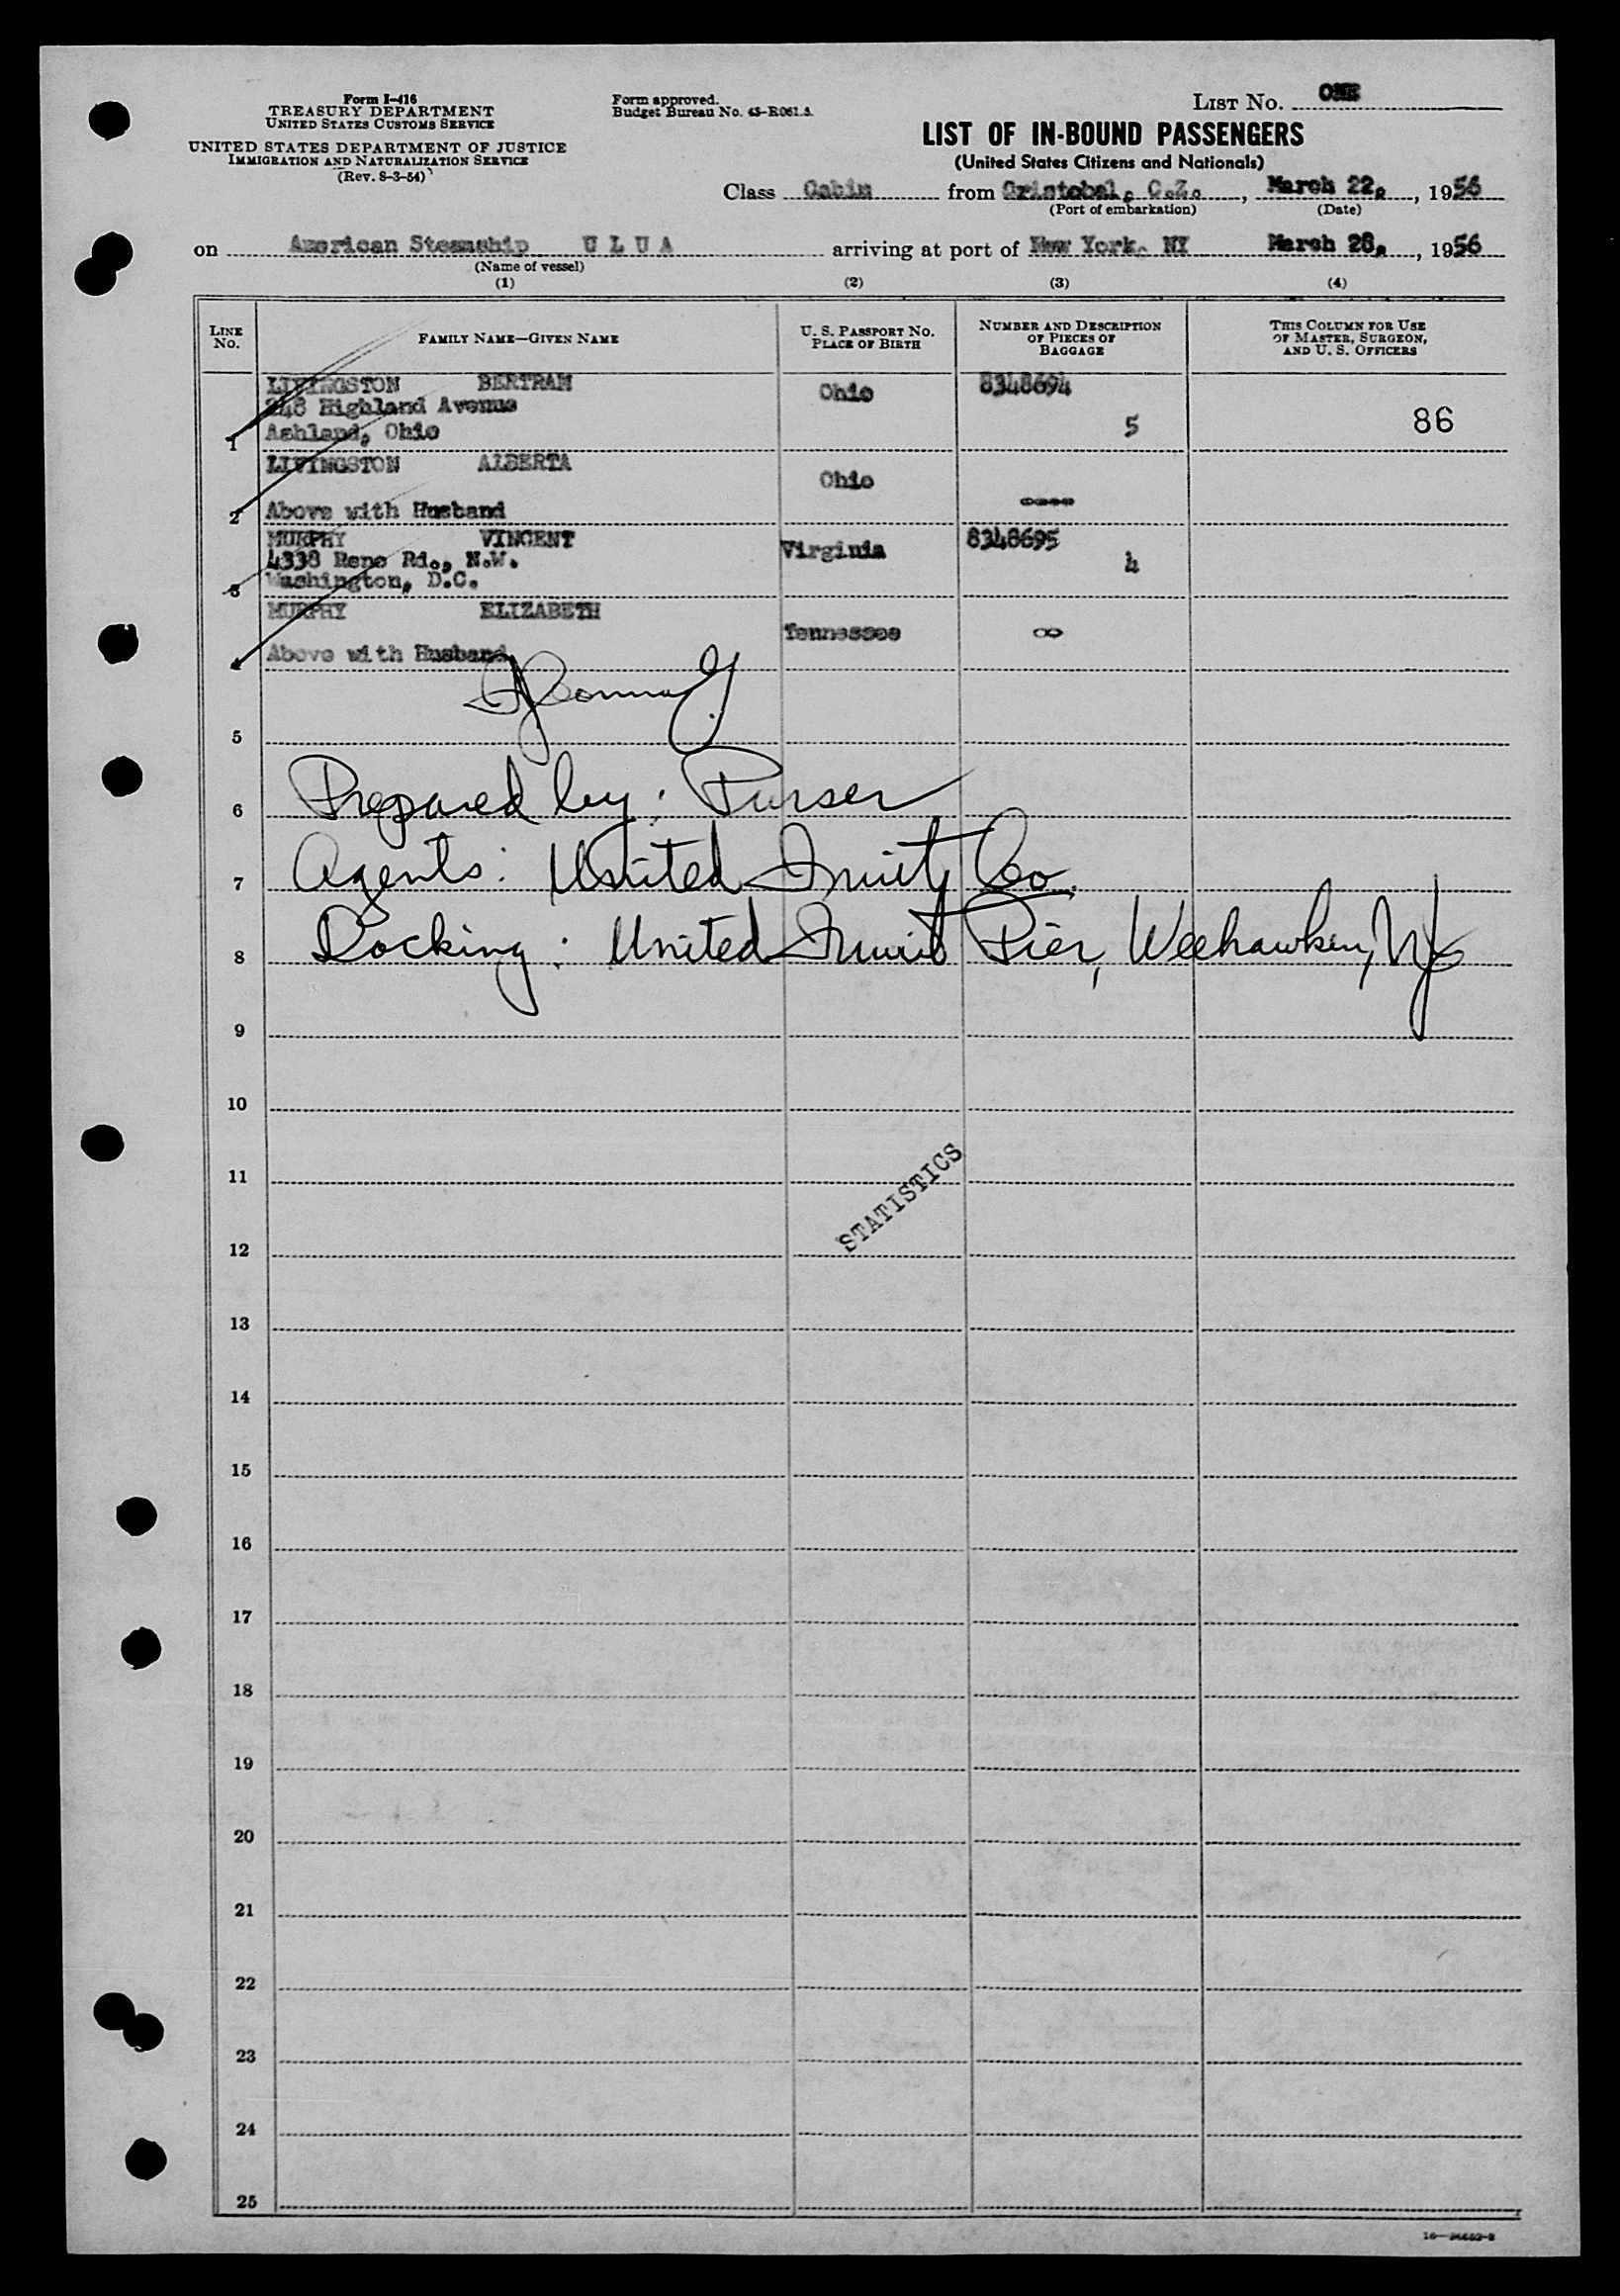 Form I-416
TREASURY DEPARTMENT
UNITED STATES CUSTOMS SERVICE
UNITED STATES DEPARTMENT OF JUSTICE
IMMIGRATION AND NATURALIZATION SERVICE
(Rev. 8-3-54)
Form approved.
Budget Bureau No. 43-R061.5.
LIST NO. ONE
LIST OF IN-BOUND PASSENGERS
(United States Citizens and Nationals)
Class Cabin from Cristobal, C.Z., March 22, 1956
(Port of embarkation) (Date)
on American Steamship U L U A arriving at port of New York, NY March 28, 1956
(Name of vessel)
(1) (2) (3) (4)
LINE NO.
FAMILY NAME—GIVEN NAME
U. S. PASSPORT NO.
PLACE OF BIRTH
NUMBER AND DESCRIPTION
OF PIECES OF
BAGGAGE
THIS COLUMN FOR USE
OF MASTER, SURGEON,
AND U. S. OFFICERS
LIVINGSTON BERTRAM Ohio 8348694
248 Highland Avenue
1 Ashland, Ohio 5 86
LIVINGSTON ALBERTA Ohio
2 Above with Husband
MURPHY VINCENT Virginia 8348695
4338 Reno Rd., N.W. 4
3 Washington, D.C.
MURPHY ELIZABETH Tennessee
4 Above with Husband
5
6 Prepared by: Purser
7 Agents: United Fruit Co.
8 Docking: United Fruit Pier, Weehawken, NJ
9
10
11
STATISTICS
12
13
14
15
16
17
18
19
20
21
22
23
24
25